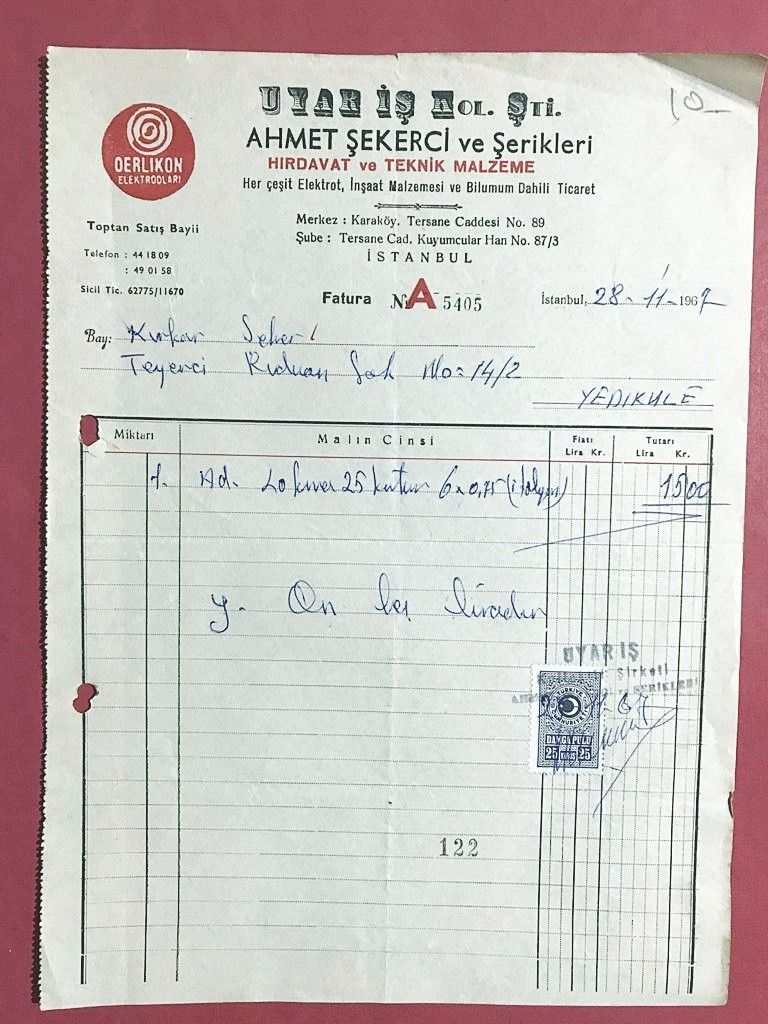 10-
UYAR İŞ KOL. ŞTİ.
AHMET ŞEKERCİ ve Şerikleri
HIRDAVAT ve TEKNİK MALZEME
Her çeşit Elektrot, İnşaat Malzemesi ve Bilumum Dahili Ticaret
OERLIKON
ELEKTRODLARI
Toptan Satış Bayii
Telefon : 44 18 09
: 49 01 58
Sicil Tic. 62775/11670
Merkez : Karaköy. Tersane Caddesi No. 89
Şube : Tersane Cad. Kuyumcular Han No. 87/3
İSTANBUL
Fatura No A 5405
İstanbul, 28-11-1967
Bay:
No=14/2
YEDIKULE
Miktarı Malın Cinsi Fiatı Tutarı
Lira Kr. Lira Kr.
1. Ad. 25 6x0,75 1500
Y. On beş liradır
UYAR İŞ
Şirketi
ŞERİKLERİ
TÜRKİYE CUMHURİYETİ
DAMGA PULU
25 KURUŞ 25
122